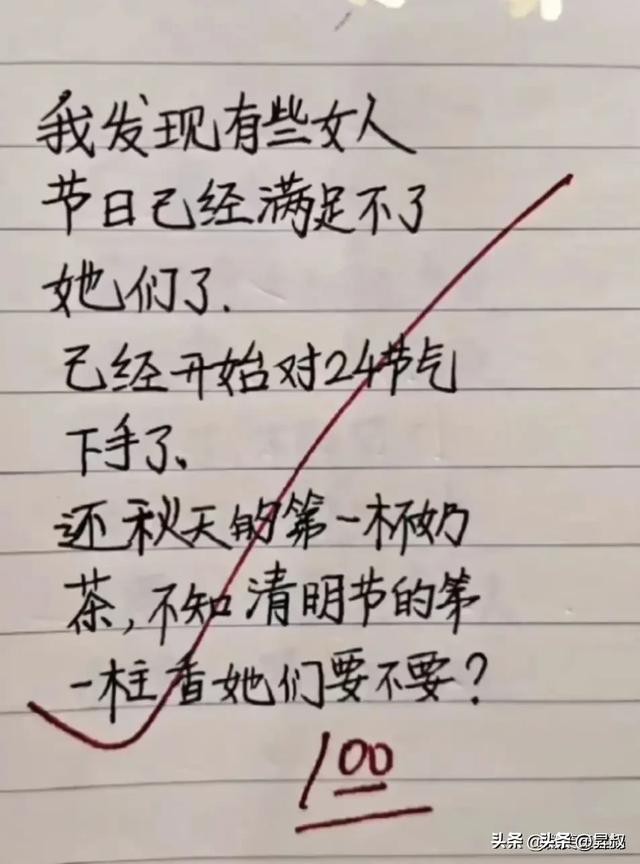 我发现有些女人
节日已经满足不了
她们了.
已经开始对24节气
下手了、
还秋天的第一杯奶
茶,不知清明节的第
一柱香她们要不要?
100
头条 @头条 @昙叔